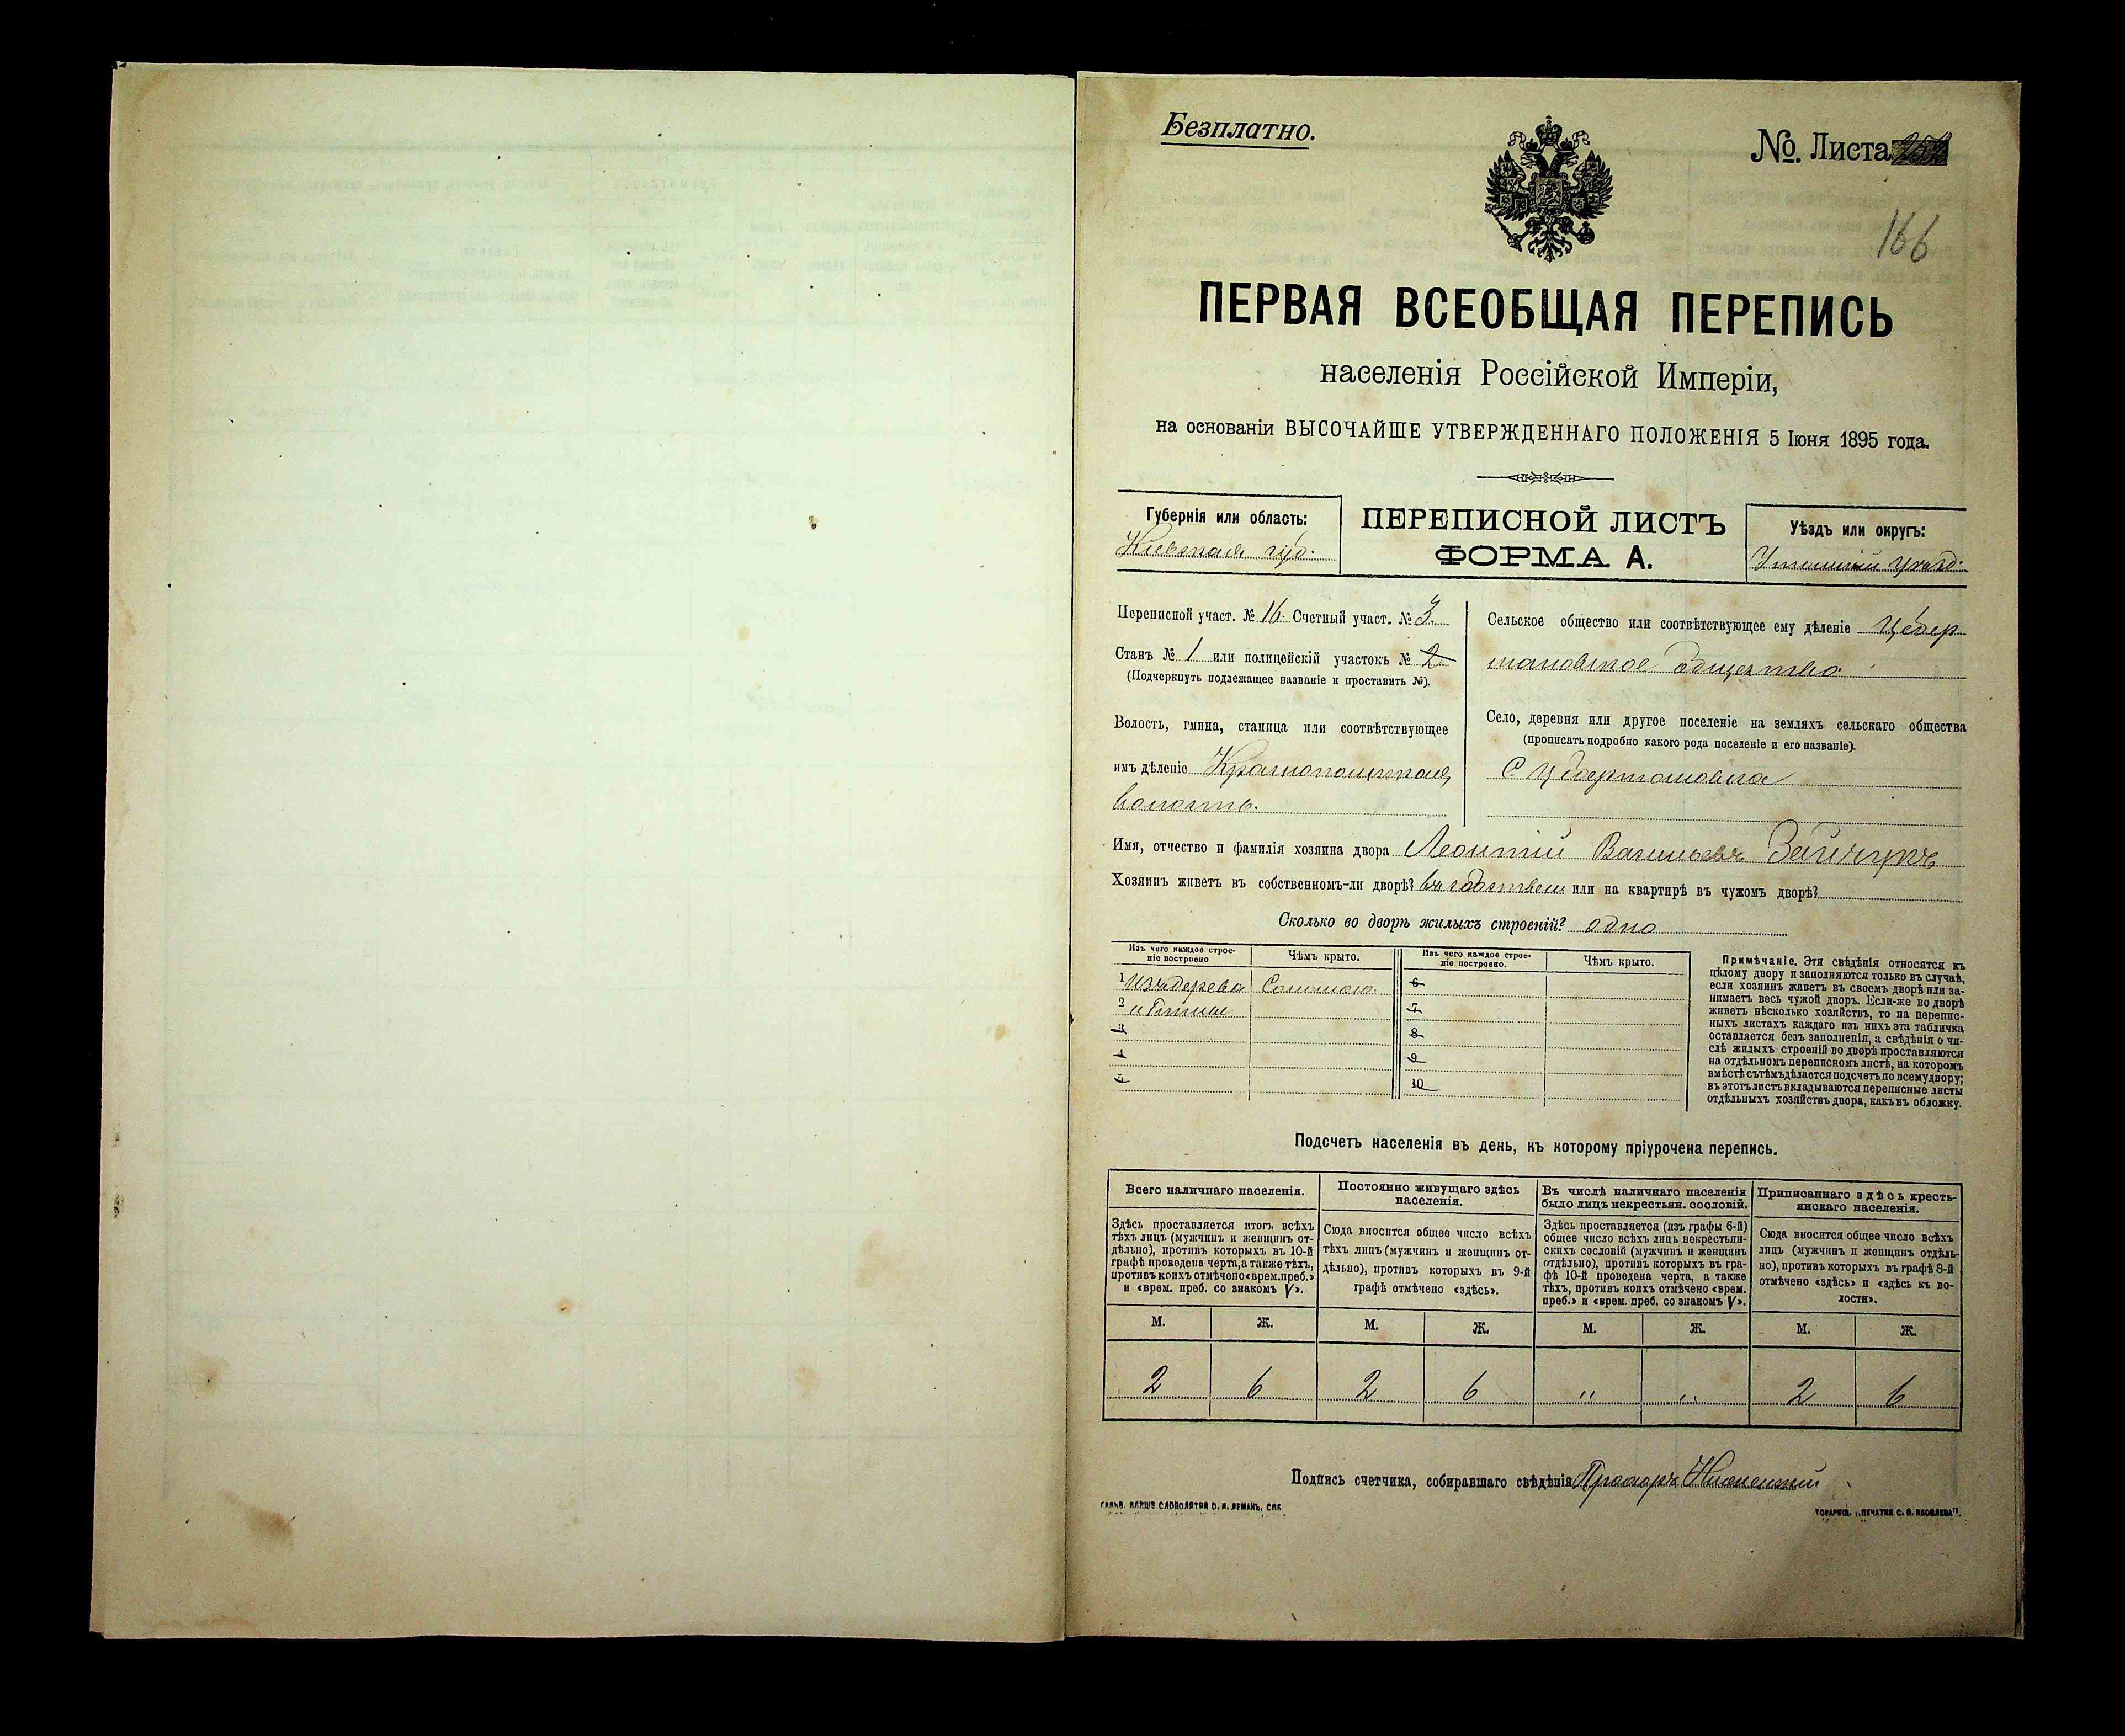 Безплатно.
№. Листа
166
ПЕРВАЯ ВСЕОБЩАЯ ПЕРЕПИСЬ
населенія Россійской Имперіи,
на основаніи ВЫСОЧАЙШЕ УТВЕРЖДЕННАГО ПОЛОЖЕНІЯ 5 Іюня 1895 года.
Губернія или область:
Кіевская губ.
ПЕРЕПИСНОЙ ЛИСТЪ
ФОРМА А.
Уѣздъ или округъ:
Уманскій уѣзд.
Переписной участ. № 16. Счетный участ. № 3.
Станъ № 1 или полицейскій участокъ № 2
(Подчеркнуть подлежащее названіе и проставить №).
Волость, гмина, станица или соотвѣтствующее
имъ дѣленіе Краснопольская
волость.
Сельское общество или соотвѣтствующее ему дѣленіе Цебер
мановское общество
Село, деревня или другое поселеніе на земляхъ сельскаго общества
(прописать подробно какого рода поселеніе и его названіе).
С. Цебермановка
Имя, отчество и фамилія хозяина двора Леонтій Васильевъ Зайчукъ
Хозяинъ живетъ въ собственномъ-ли дворѣ? въ собствен или на квартирѣ въ чужомъ дворѣ?
Сколько во дворѣ жилыхъ строеній? одно
Изъ чего каждое строе-
ніе построено
Чѣмъ крыто.
Изъ чего каждое строе-
ніе построено.
Чѣмъ крыто.
1 Изъ дерева Соломою. 6
2 и глины 7
3 8
4 9
5 10
Примѣчаніе. Эти свѣдѣнія относятся къ
цѣлому двору и заполняются только въ случаѣ,
если хозяинъ живетъ въ своемъ дворѣ или за-
нимаетъ весь чужой дворъ. Если-же во дворѣ
живетъ нѣсколько хозяйствъ, то на перепис-
ныхъ листахъ каждаго изъ нихъ эта табличка
оставляется безъ заполненія, а свѣдѣнія о чи-
слѣ жилыхъ строеній во дворѣ проставляются
на отдѣльномъ переписномъ листѣ, на которомъ
вмѣстѣ съ тѣмъ дѣлается подсчетъ по всему двору;
въ этотъ листъ вкладываются переписные листы
отдѣльныхъ хозяйствъ двора, какъ въ обложку.
Подсчетъ населенія въ день, къ которому пріурочена перепись.
Всего наличнаго населенія.
Здѣсь проставляется итогъ всѣхъ
тѣхъ лицъ (мужчинъ и женщинъ от-
дѣльно), противъ которыхъ въ 10-й
графѣ проведена черта, а также тѣхъ,
противъ коихъ отмѣчено «врем. преб.»
и «врем. преб. со знакомъ V».
Постоянно живущаго здѣсь
населенія.
Сюда вносится общее число всѣхъ
тѣхъ лицъ (мужчинъ и женщинъ от-
дѣльно), противъ которыхъ въ 9-й
графѣ отмѣчено «здѣсь».
Въ числѣ наличнаго населенія
было лицъ некрестьян. сословій.
Здѣсь проставляется (изъ графы 6-й)
общее число всѣхъ лицъ некрестьян-
скихъ сословій (мужчинъ и женщинъ
отдѣльно), противъ которыхъ въ гра-
фѣ 10-й проведена черта, а также
тѣхъ, противъ коихъ отмѣчено «врем.
преб.» и «врем. преб. со знакомъ V».
Приписаннаго здѣсь кресть-
янскаго населенія.
Сюда вносится общее число всѣхъ
лицъ (мужчинъ и женщинъ отдѣль-
но), противъ которыхъ въ графѣ 8-й
отмѣчено «здѣсь» и «здѣсь къ во-
лости».
М. Ж. М. Ж. М. Ж. М. Ж.
2 6 2 6 " " 2 6
Подпись счетчика, собиравшаго свѣдѣнія
ТОВАРИЩ. „ПЕЧАТНЯ С. П. ЯКОВЛЕВА".